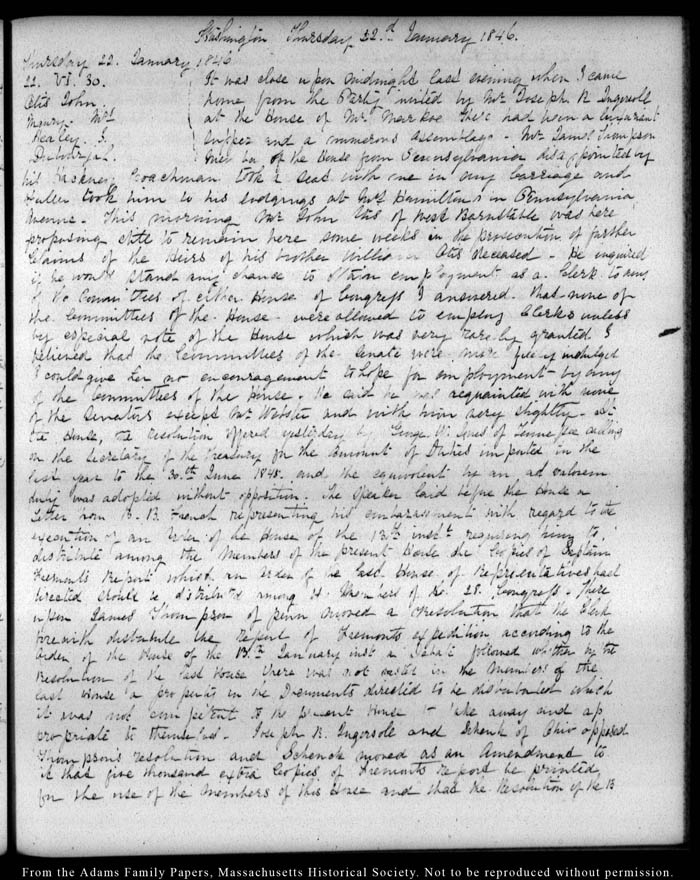 Washington Thursday 22.d January 1846.
Thursday 22. January 1846
22. VI. 30. It was close upon midnight last evening when I came
Otis John home from the Party invited by Mr Joseph R Ingersoll
Maury. Mrs at the House of Mr Markoe there had been a luxuriant
Healey. G. supper and a numerous assemblage - Mr James Thompson
Member of the House from Pennsylvania disappointed by
his Hackney Coachman took a seat with me in my Carriage and
took him to his lodgings at Mrs Hamilton's in Pennsylvania
Avenue. This morning Mr John Otis of West Barnstable was here
proposing to remain here some weeks in the prosecution of further
Claims of the Heirs of his brother William Otis deceased - He enquired
if he would stand any chance to obtain employment as a Clerk to any
of the Committees of either House of Congress I answered that none of
the Committees of the House were allowed to employ Clerks unless
by especial vote of the House which was very rarely granted I
believed that the Committees of the Senate were more freely indulged
I could give him no encouragement to hope for employment by any
of the Committees of the House. He said he was acquainted with none
of the Senators except Mr Webster and with him very slightly - At
the House, the resolution offered yesterday by George W. Jones of Tennessee calling
on the Secretary of the Treasury for the amount of Duties imported in the
last year to the 30.th June 1845. and the equivalent by an ad valorem
duty was adopted without opposition. The Speaker laid before the House a
Letter from B. B. French representing his embarrassment with regard to the
execution of an Order of the House of the 13th inst.t requiring him to
distribute among the Members of the present House the Copies of Captain
Fremonts Report which an order of the last House of Representatives had
directed should be distributed among the Members of the 28. Congress. There
upon James Thompson of Penn moved a Resolution that the Clerk
forewith distribute the report of Fremonts expedition according to the
Order of the House of the 13.th January inst a Debate followed whether by the
Resolution of the last House there was not vested in the Members of the
last House a property in the Documents directed to be distributed which
it was not competent to the present House to take away and ap
propriate to themselves. Joseph R. Ingersole and Schenck of Ohio opposed
Thompson's resolution and Schenck moved as an Amendment to
it that five thousand extra Copies of Fremonts report be printed,
for the use of the Members of this House and that the Resolution of the 13
From the Adams Family Papers, Massachusetts Historical Society. Not to be reproduced without permission.